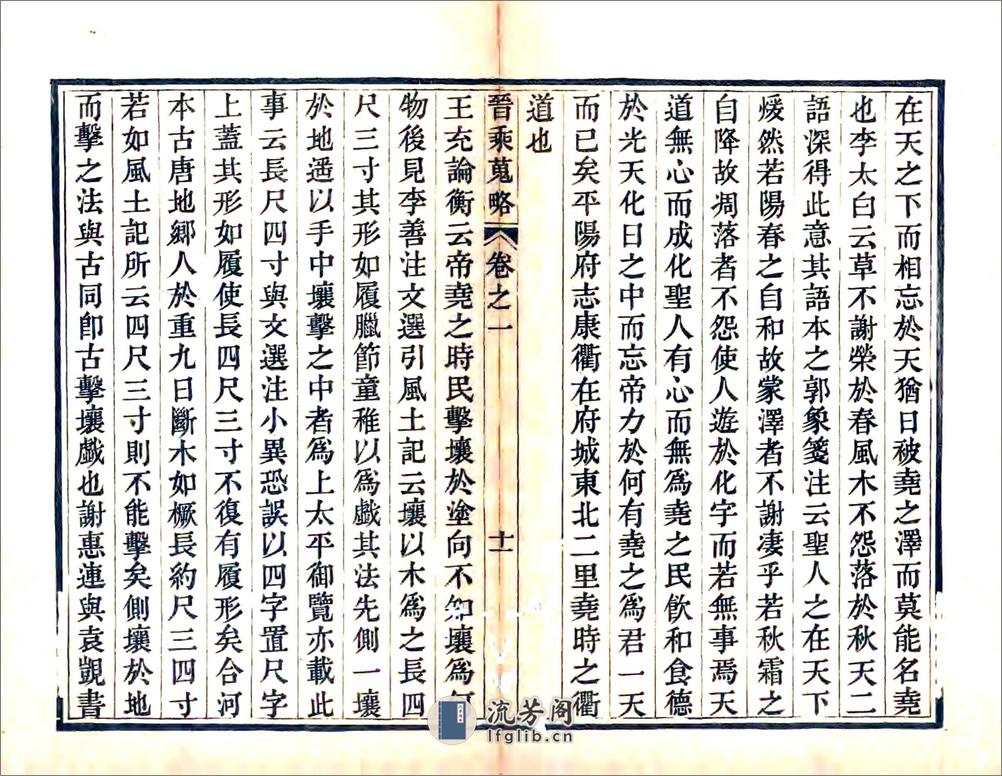 在天之下而相忘於天猶日被堯之澤而莫能名堯
也李太白云草不謝榮於春風木不怨落於秋天二
語深得此意其語本之郭象箋注云聖人之在天下
煖然若陽春之自和故蒙澤者不謝凄乎若秋霜之
自降故凋落者不怨使人遊於化字而若無事焉天
道無心而成化聖人有心而無為堯之民飲和食德
於光天化日之中而忘帝力於何有堯之為君一天
而已矣平陽府志康衢在府城東北二里堯時之衢
道也
晉乘蒐略 卷之一 十一
王充論衡云帝堯之時民擊壤於塗向不知壤為何
物後見李善注文選引風土記云壤以木為之長四
尺三寸其形如履臘節童稚以為戲其法先側一壤
於地遥以手中壤擊之中者為上太平御覽亦載此
事云長尺四寸與文選注小異恐誤以四字置尺字
上蓋其形如履使長四尺三寸不復有履形矣合河
本古唐地鄉人於重九日斷木如橛長約尺三四寸
若如風土記所云四尺三寸則不能擊矣側壤於地
而擊之法與古同卽古擊壤戲也謝惠連與袁覬書
流芳阁
lfglib.cn